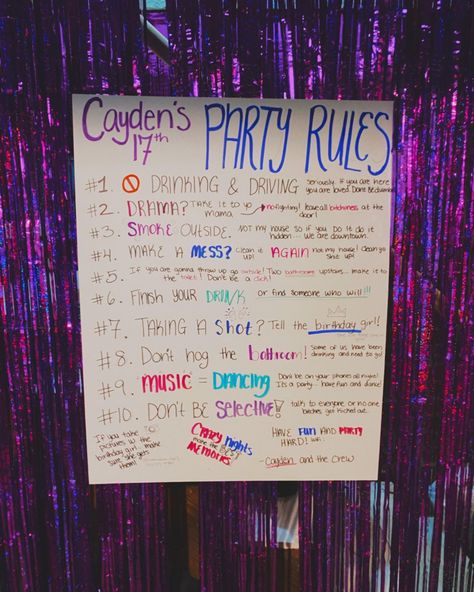 Cayden's 17th PARTY RULES
#1. 🚫 DRINKING & DRIVING Seriously. If you are here
you are loved. Dont Be dumb
#2. DRAMA? Take it to yo mama. → no fighting! leave all bitchiness at the door!
#3. SMOKE OUTSIDE. NOT my house so if you do it do it
hidden... We are downtown.
#4. MAKE A MESS? Clean it up! AGAIN not my house! clean yo shit up!
#5. If you are gonna throw up go outside! Two bathrooms upstairs... make it to
the toilet! Don't be a dick!
#6. Finish YOUR DRINK or find someone who will!!!
#7. TAKING A Shot? Tell the birthday girl!
#8. Don't hog the bathroom! Some of us have been
drinking and need to go!
#9. MUSIC = DANCING Dont be on your phones all night!
Its a party... have fun and dance!
#10. DON'T BE SELECTIVE! talk to everyone or no one
bitches get kicked out.
If you take
pictures w the
birthday girl make
sure she gets
them!
CRAZY Nights
make the BEST
MEMORIES
HAVE FUN AND PARTY
HARD!
-Cayden and the Crew